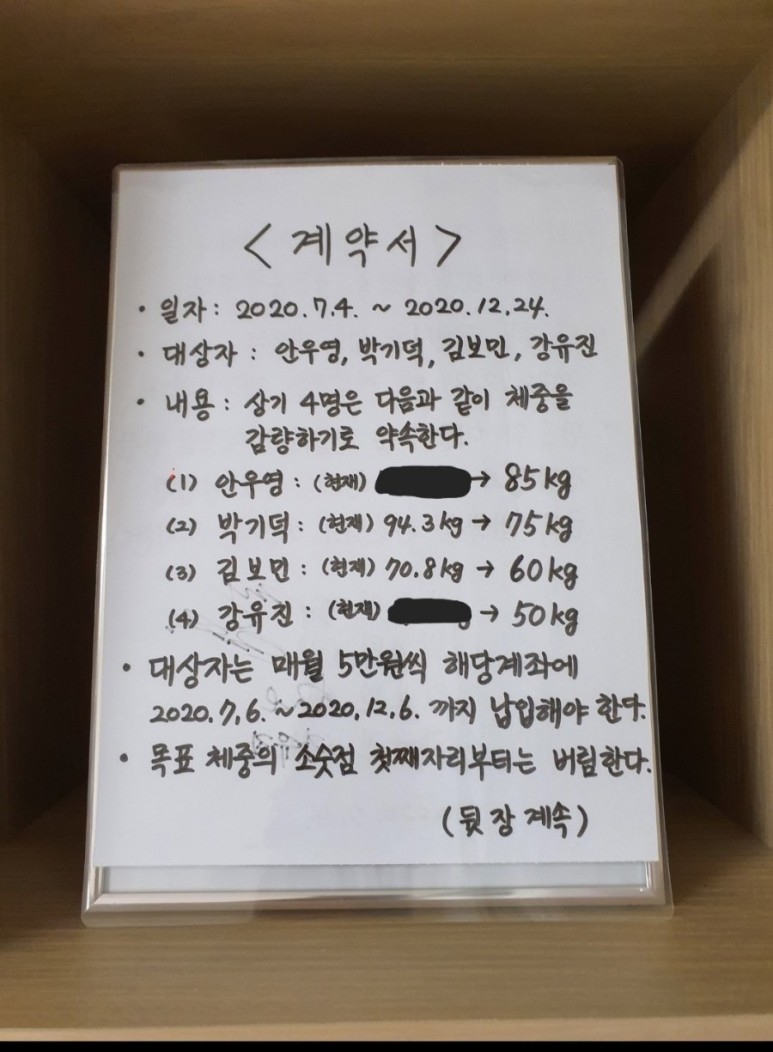 <계약서>
· 일자 : 2020.7.4. ~ 2020.12.24.
· 대상자 : 안우영, 박기덕, 김보민, 강유진
· 내용 : 상기 4명은 다음과 같이 체중을
감량하기로 약속한다.
(1) 안우영 : (현재) → 85kg
(2) 박기덕 : (현재) 94.3kg → 75kg
(3) 김보민 : (현재) 70.8kg → 60kg
(4) 강유진 : (현재) → 50kg
· 대상자는 매월 5만원씩 해당계좌에
2020.7.6. ~ 2020.12.6. 까지 납입해야 한다.
· 목표 체중의 소숫점 첫째자리부터는 버림한다.
(뒷장 계속)